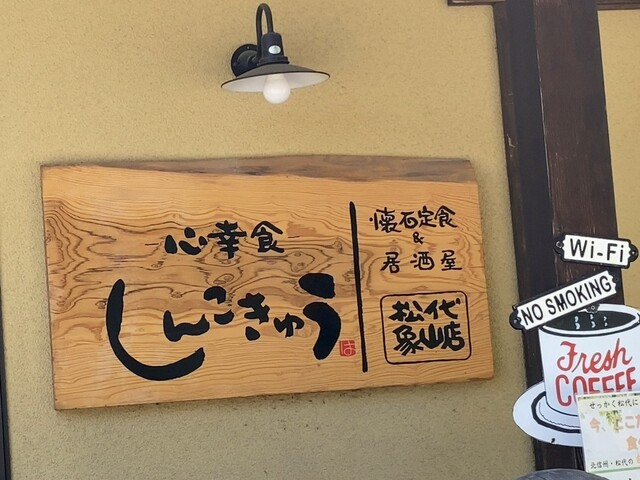 心幸食
しんこきゅう
は
懐石定食
&
居酒屋
松代
象山店
Wi-Fi
NO SMOKING
Fresh
COFFEE
せっかく松代に
今、ここだ
北信州・松代の